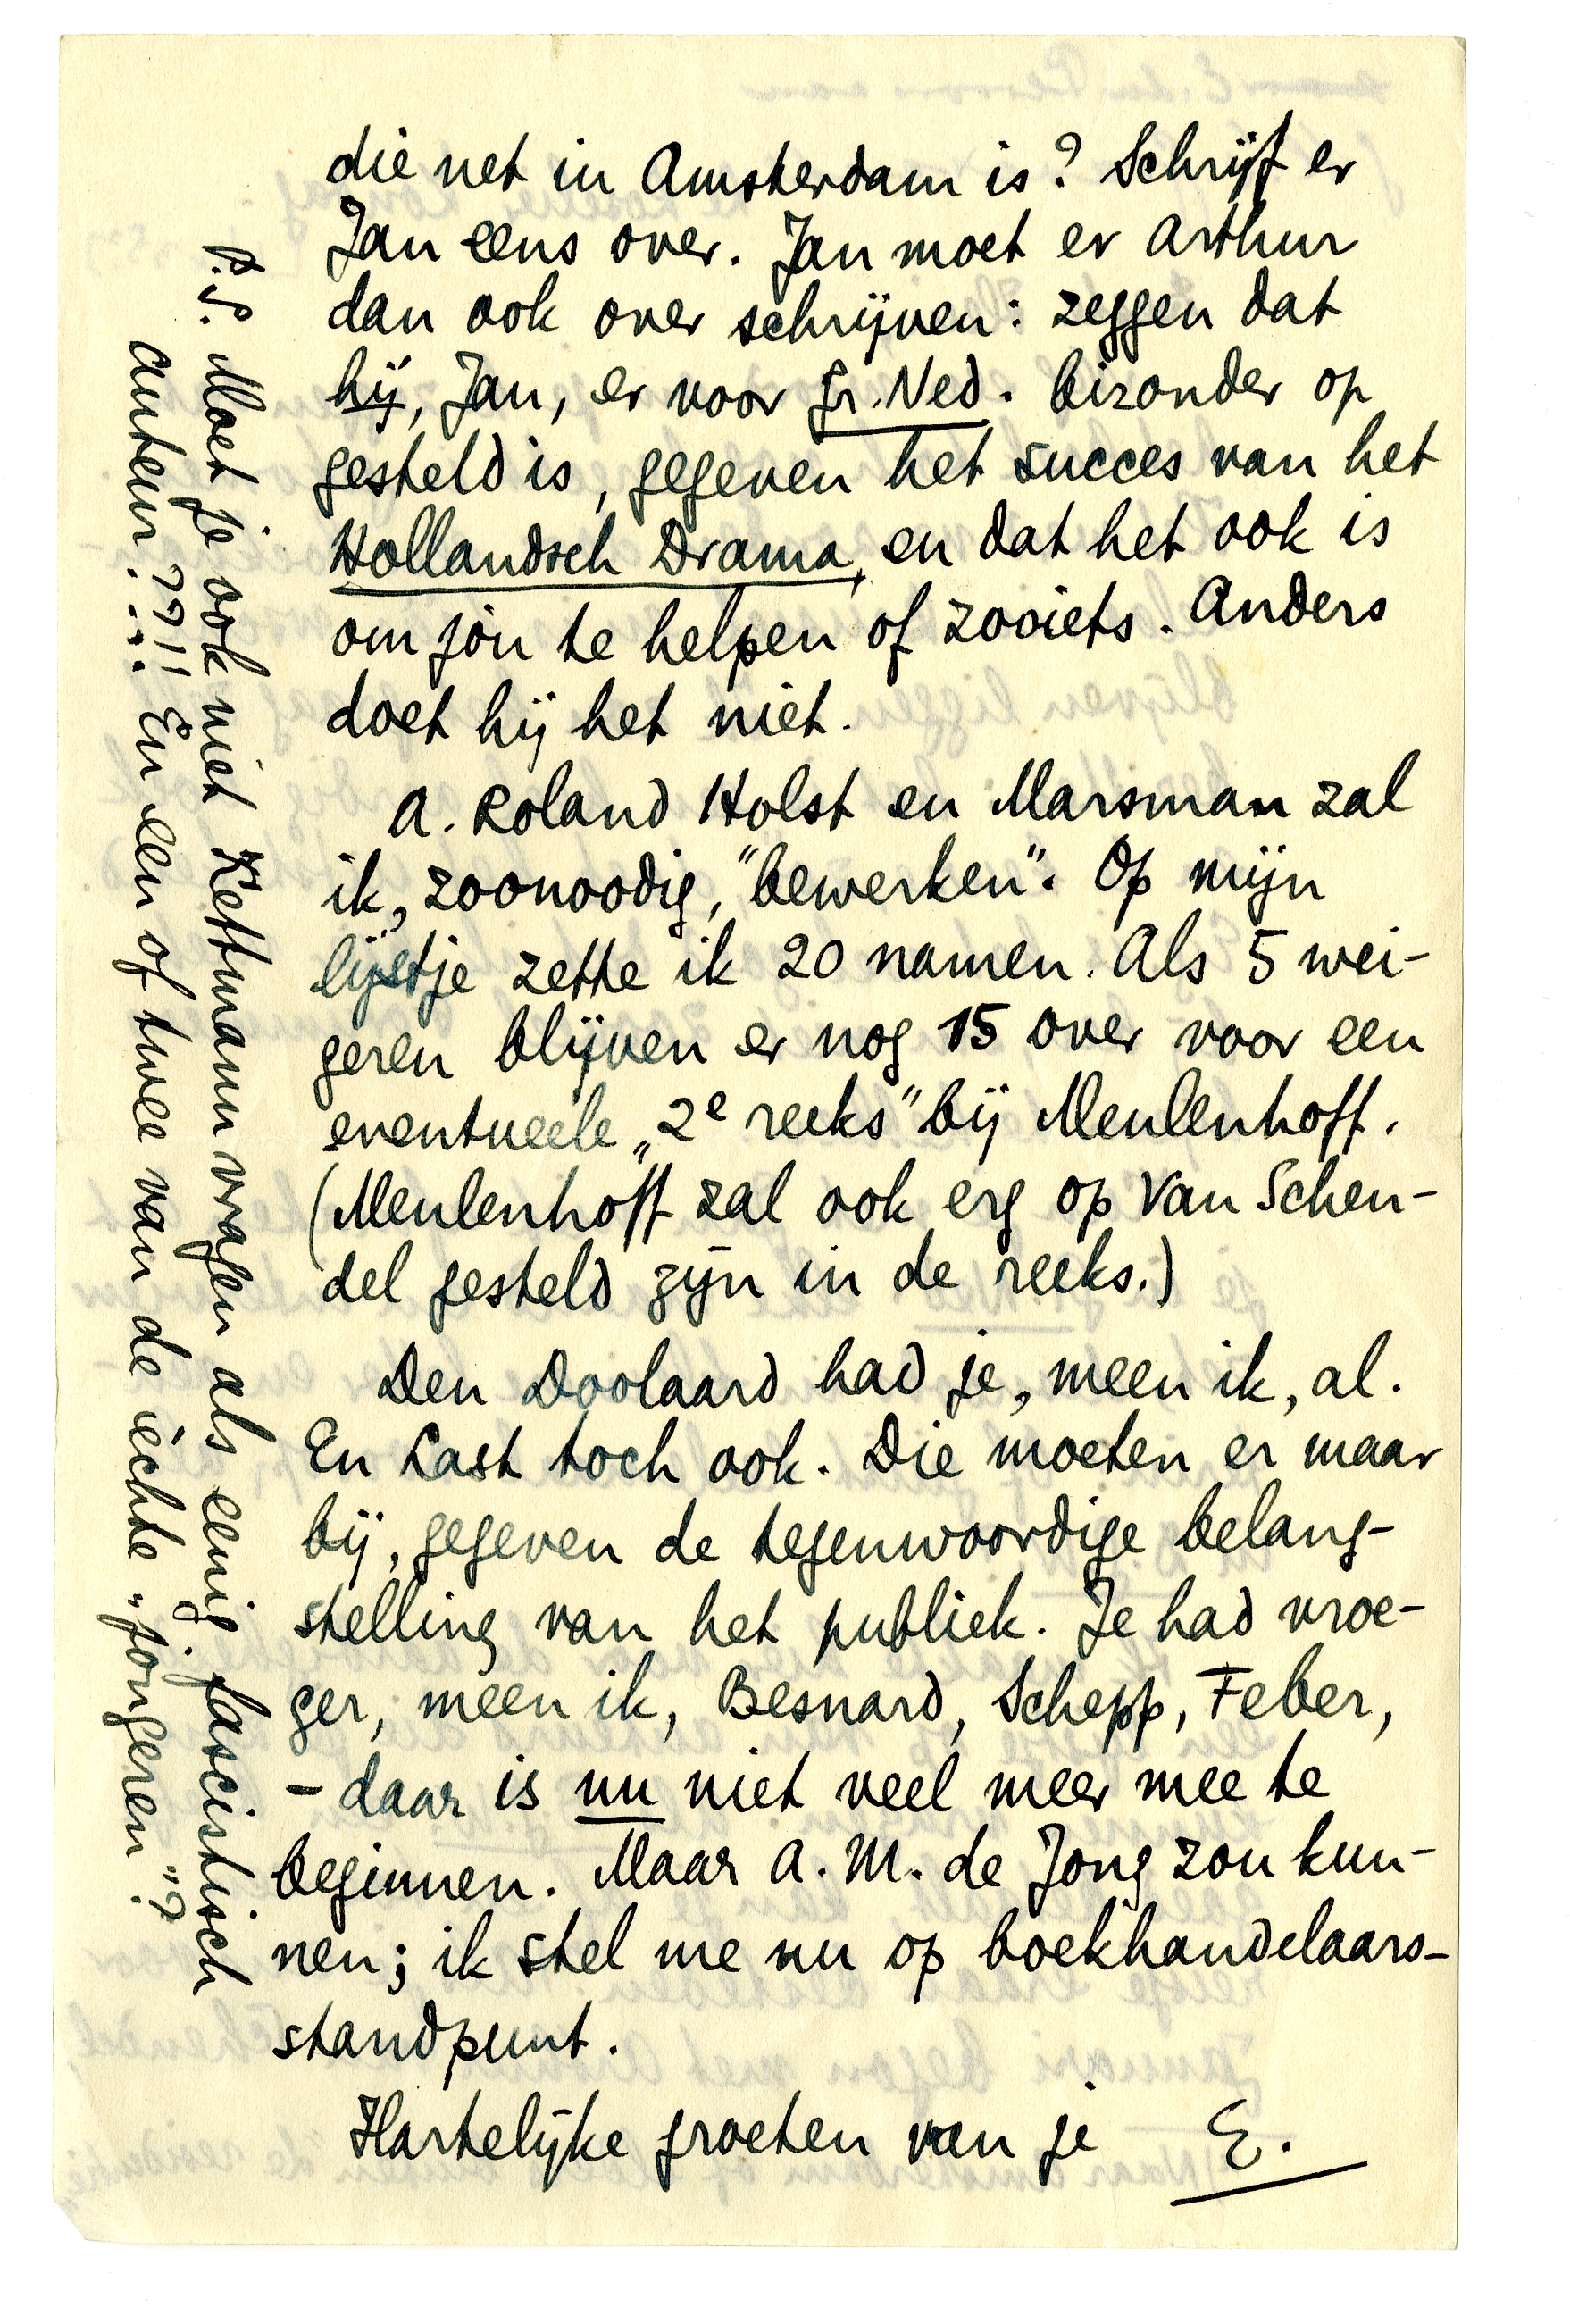 die net in Amsterdam is? Schrijf er
Jan eens over. Jan moet er Arthur
dan ook over schrijven: zeggen dat
hij, Jan, er voor Gr. Ned. bizonder op
gesteld is, gegeven het succes van het
Hollandsch Drama, en dat het ook is
om jòu te helpen of zooiets. Anders
doet hij het niet.
A. Roland Holst en Marsman zal
ik, zoonoodig, "bewerken". Op mijn
lijstje zette ik 20 namen. Als 5 wei-
geren blijven er nog 15 over voor een
eventueele „2e reeks" bij Meulenhoff.
(Meulenhoff zal ook erg op Van Schen-
del gesteld zijn in de reeks.)
Den Doolaard had je, meen ik, al.
En Last toch ook. Die moeten er maar
bij, gegeven de tegenwoordige belang-
stelling van het publiek. Je had vroe-
ger, meen ik, Besnard, Schepp, Feber,
- daar is nu niet veel meer mee te
beginnen. Maar A. M. de Jong zou kun-
nen; ik stel me nu op boekhandelaars-
standpunt.
Hartelijke groeten van je E.
P.S. Moet je ook niet Kettmann vragen als eenig fascistisch
auteur??!! En een of twee van de èchte „jongeren"?